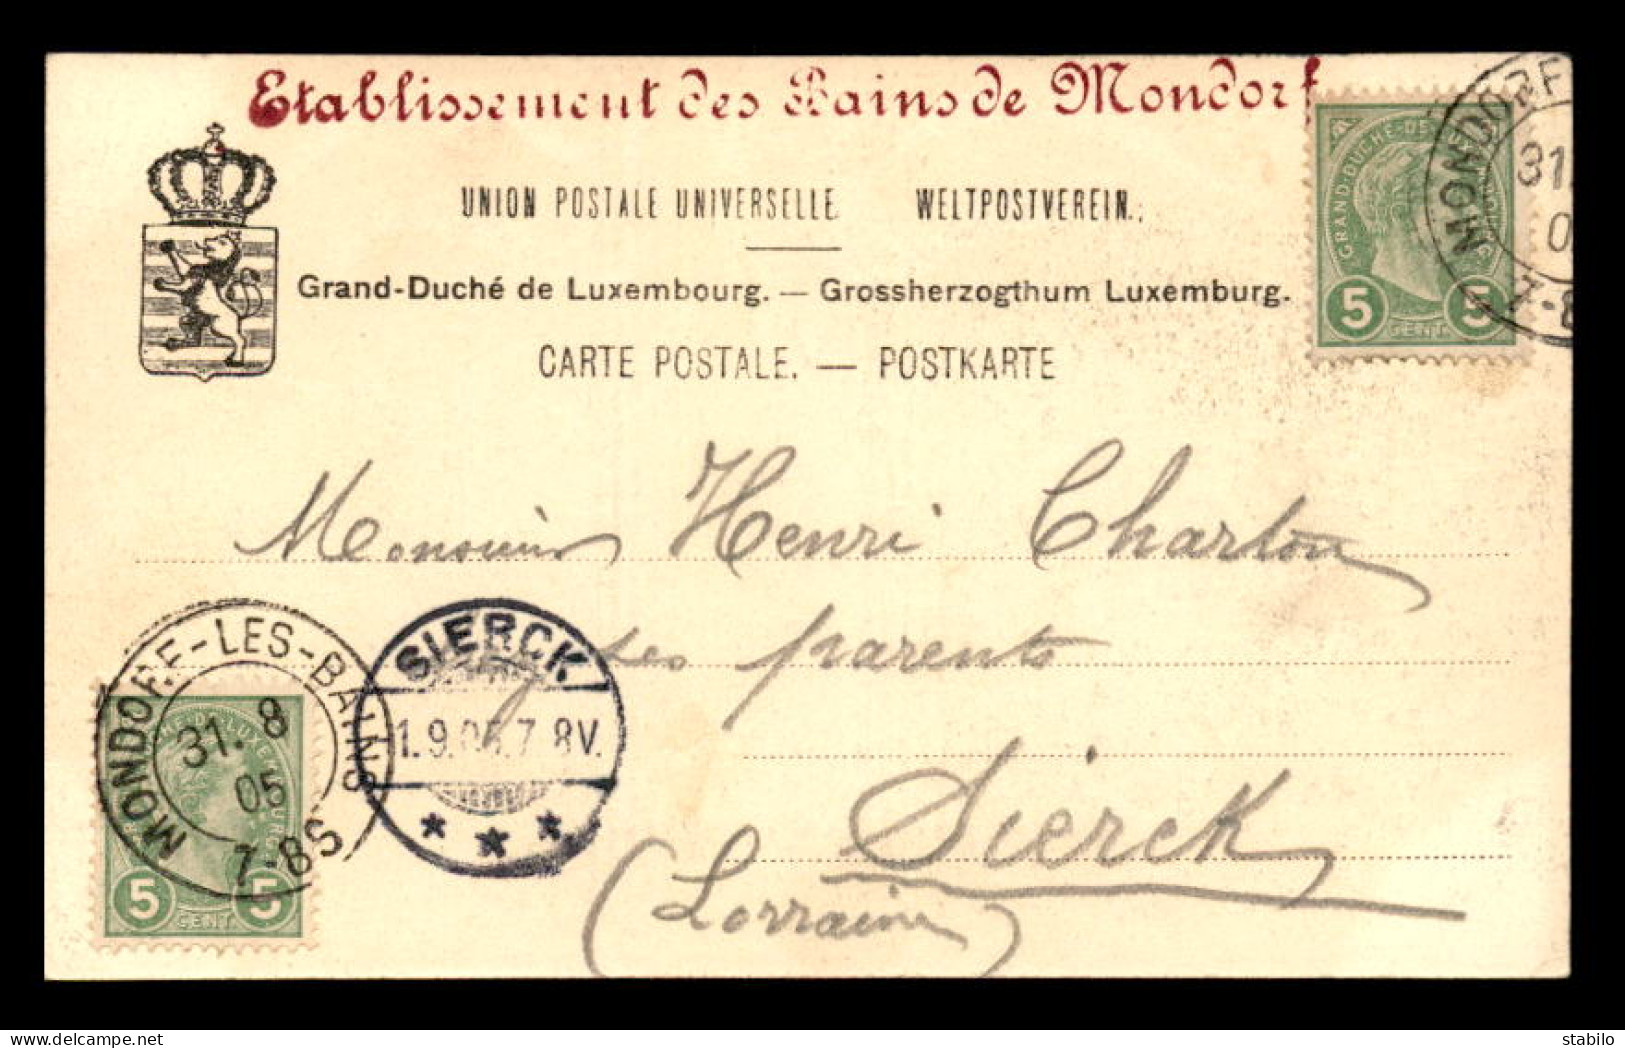 Etablissement des Bains de Mondorf
UNION POSTALE UNIVERSELLE. WELTPOSTVEREIN.
Grand-Duché de Luxembourg. — Grossherzogthum Luxemburg.
CARTE POSTALE. — POSTKARTE
GRAND-DUCHÉ-DE-
5 CENT. 5
MONDORF
31.
0
7-8
Monsieur Henri Charton
ses parents
Sierck
(Lorraine)
MONDORF-LES-BAINS
31. 8
05
7-8S
SIERCK.
1.9.05.7 8V.
5 CENT. 5
www.delcampe.net
stabilo